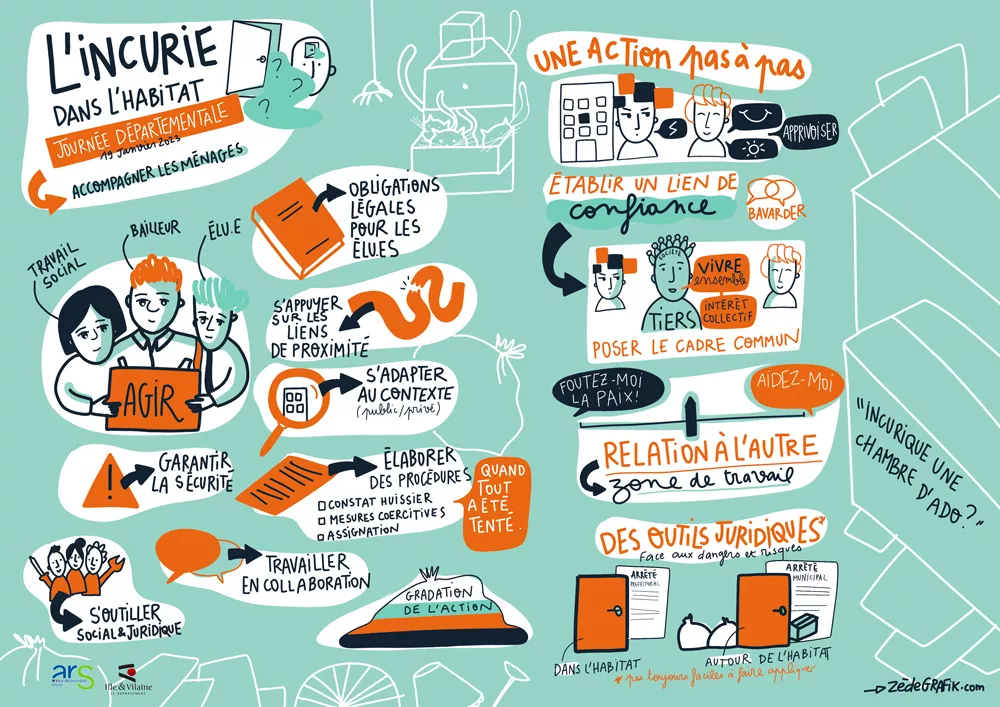 L'INCURIE
DANS L'HABITAT
JOURNÉE DÉPARTEMENTALE
19 JANVIER 2023
ACCOMPAGNER LES MÉNAGES
TRAVAIL
SOCIAL
BAILLEUR
ÉLU.E
AGIR
OBLIGATIONS
LÉGALES
POUR LES
ÉLU.ES
S'APPUYER
SUR LES
LIENS
DE PROXIMITÉ
S'ADAPTER
AU CONTEXTE
(public/privé)
GARANTIR
LA SÉCURITÉ
ÉLABORER
DES PROCÉDURES
CONSTAT HUISSIER
MESURES COERCITIVES
ASSIGNATION
QUAND
TOUT
A ÉTÉ
TENTÉ.
TRAVAILLER
EN COLLABORATION
S'OUTILLER
SOCIAL & JURIDIQUE
GRADATION
DE L'ACTION
ars
Ille & Vilaine
LE DÉPARTEMENT
UNE ACTION pas à pas
APPRIVOISER
ÉTABLIR UN LIEN DE
confiance
BAVARDER
SOCIÉTÉ
VIVRE
ensemble
INTÉRÊT
COLLECTIF
TIERS
POSER LE CADRE COMMUN
FOUTEZ-MOI
LA PAIX!
AIDEZ-MOI
RELATION À L'AUTRE
zone de travail
"INCURIQUE UNE
CHAMBRE
D'ADO?"
DES OUTILS JURIDIQUES*
Face aux dangers et risques
ARRÊTÉ
PRÉFECTORAL
ARRÊTÉ
MUNICIPAL
DANS L'HABITAT
AUTOUR DE L'HABITAT
* pas toujours faciles à faire appliquer
ZédeGRAFIK.com